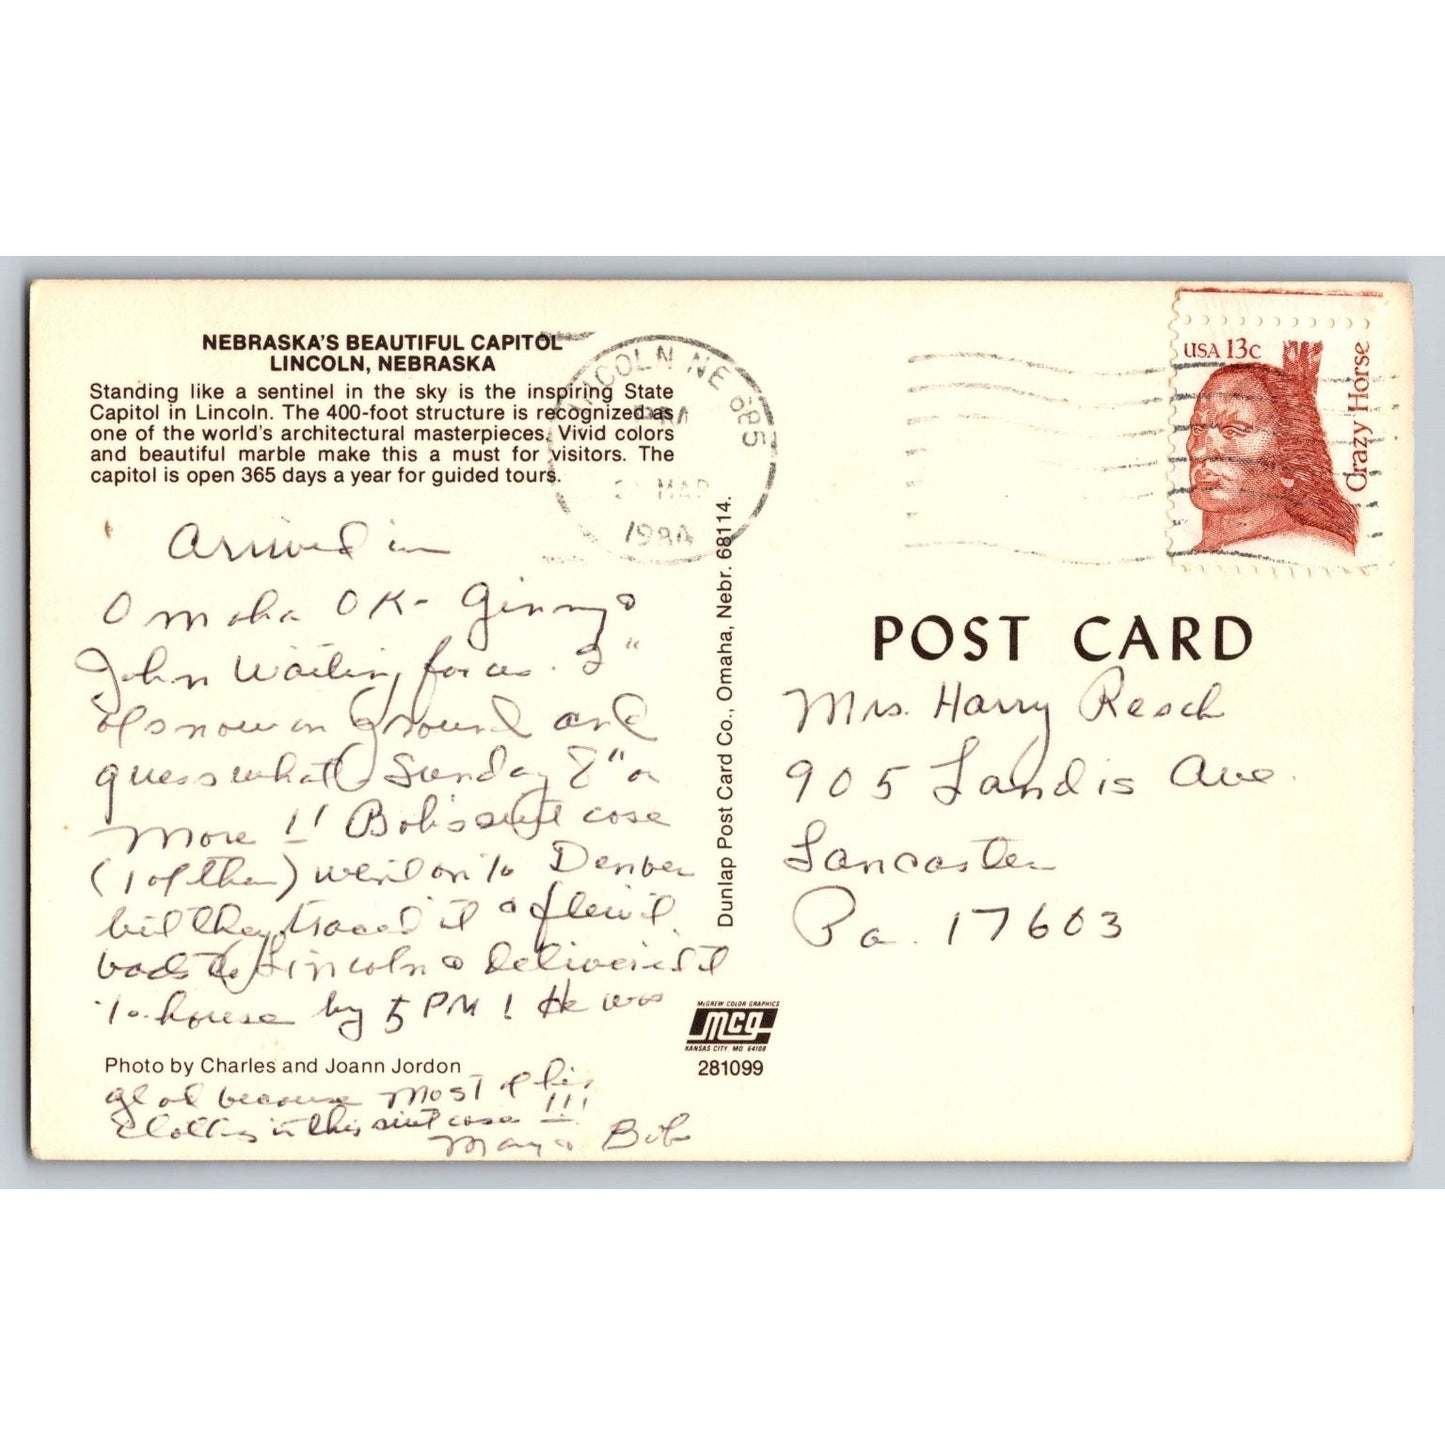 NEBRASKA'S BEAUTIFUL CAPITOL
LINCOLN, NEBRASKA
Standing like a sentinel in the sky is the inspiring State
Capitol in Lincoln. The 400-foot structure is recognized as
one of the world's architectural masterpieces. Vivid colors
and beautiful marble make this a must for visitors. The
capitol is open 365 days a year for guided tours.
Arrived in
Omaha OK- Ginny &
John Waiting for us. 3"
of snow on ground and
guess what Sunday 8" or
More !! Bob's suit case
(1 of them) went on to Denver
but they traced it & flew it
back to Lincoln & delivered it
to house by 5 PM! He was
Photo by Charles and Joann Jordon
glad because most of his
clothing in this suit case !!!
Mary & Bob
LINCOLN NE 685
PM
MAR
1984
Dunlap Post Card Co., Omaha, Nebr. 68114.
McGREW COLOR GRAPHICS
mcg
KANSAS CITY, MO 64108
281099
USA 13c
Crazy Horse
POST CARD
Mrs. Harry Resch
905 Landis Ave.
Lancaster
Pa. 17603